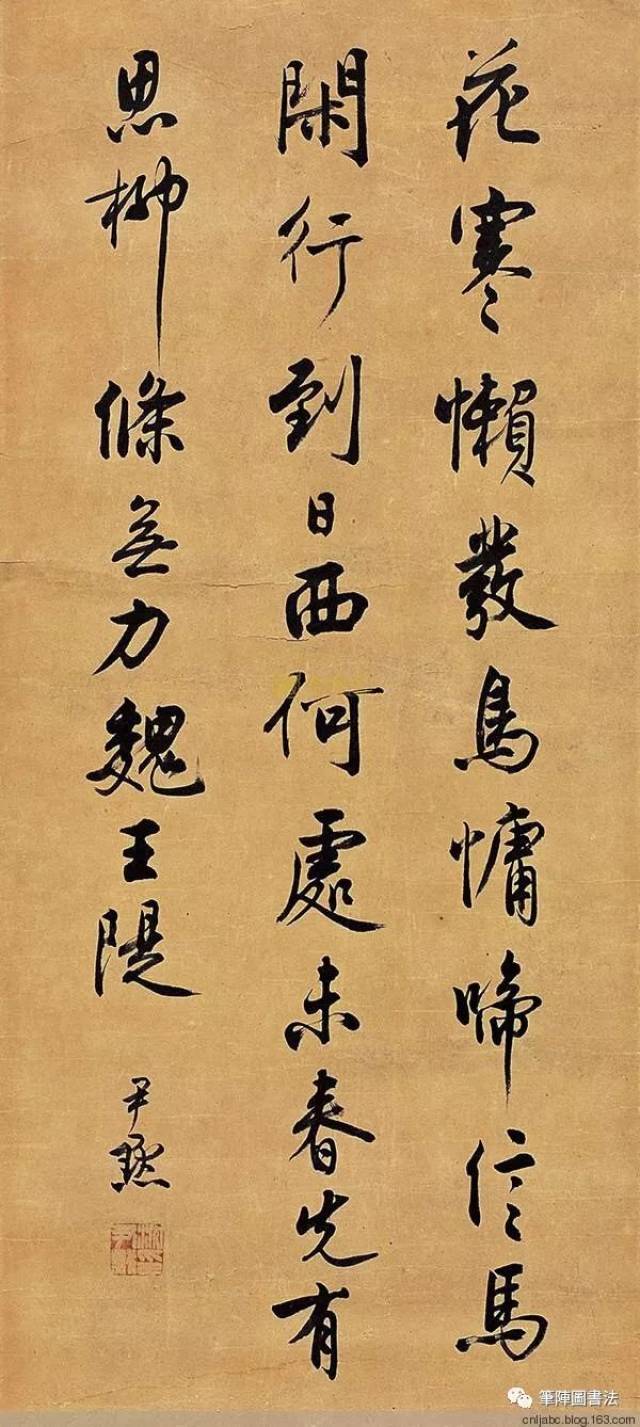 花寒懶發鳥慵啼信馬
閑行到日西何處未春先有
思柳條無力魏王隄
尹默
筆陣圖書法
cnljabc.blog.163.com